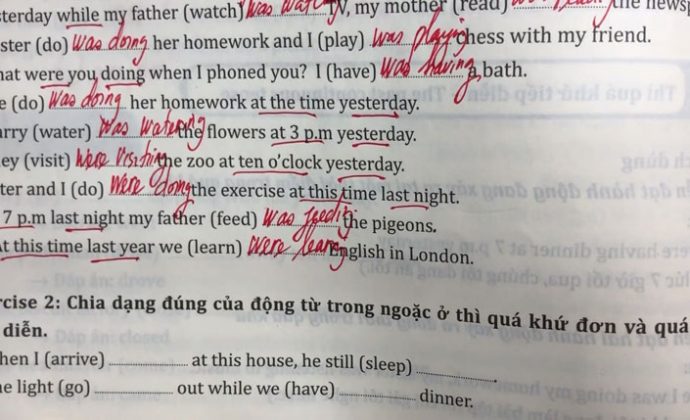 sterday while my father (watch) was watching TV, my mother (read) the newsp
ster (do) was doing her homework and I (play) was playing chess with my friend.
hat were you doing when I phoned you? I (have) was having a bath.
e (do) was doing her homework at the time yesterday.
arry (water) was watering the flowers at 3 p.m yesterday.
ey (visit) were visiting the zoo at ten o'clock yesterday.
ter and I (do) were doing the exercise at this time last night.
7 p.m last night my father (feed) was feeding the pigeons.
At this time last year we (learn) were learning English in London.
rcise 2: Chia dạng đúng của động từ trong ngoặc ở thì quá khứ đơn và quá
diễn.
hen I (arrive) at this house, he still (sleep)
he light (go) out while we (have) dinner.